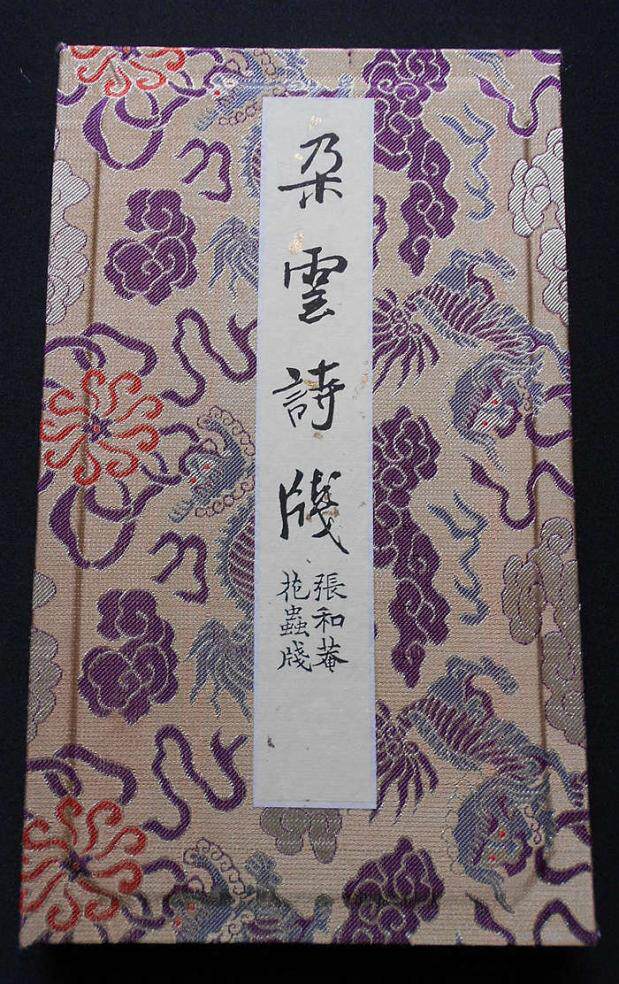 朵雲詩牋
張和菴
花蟲牋